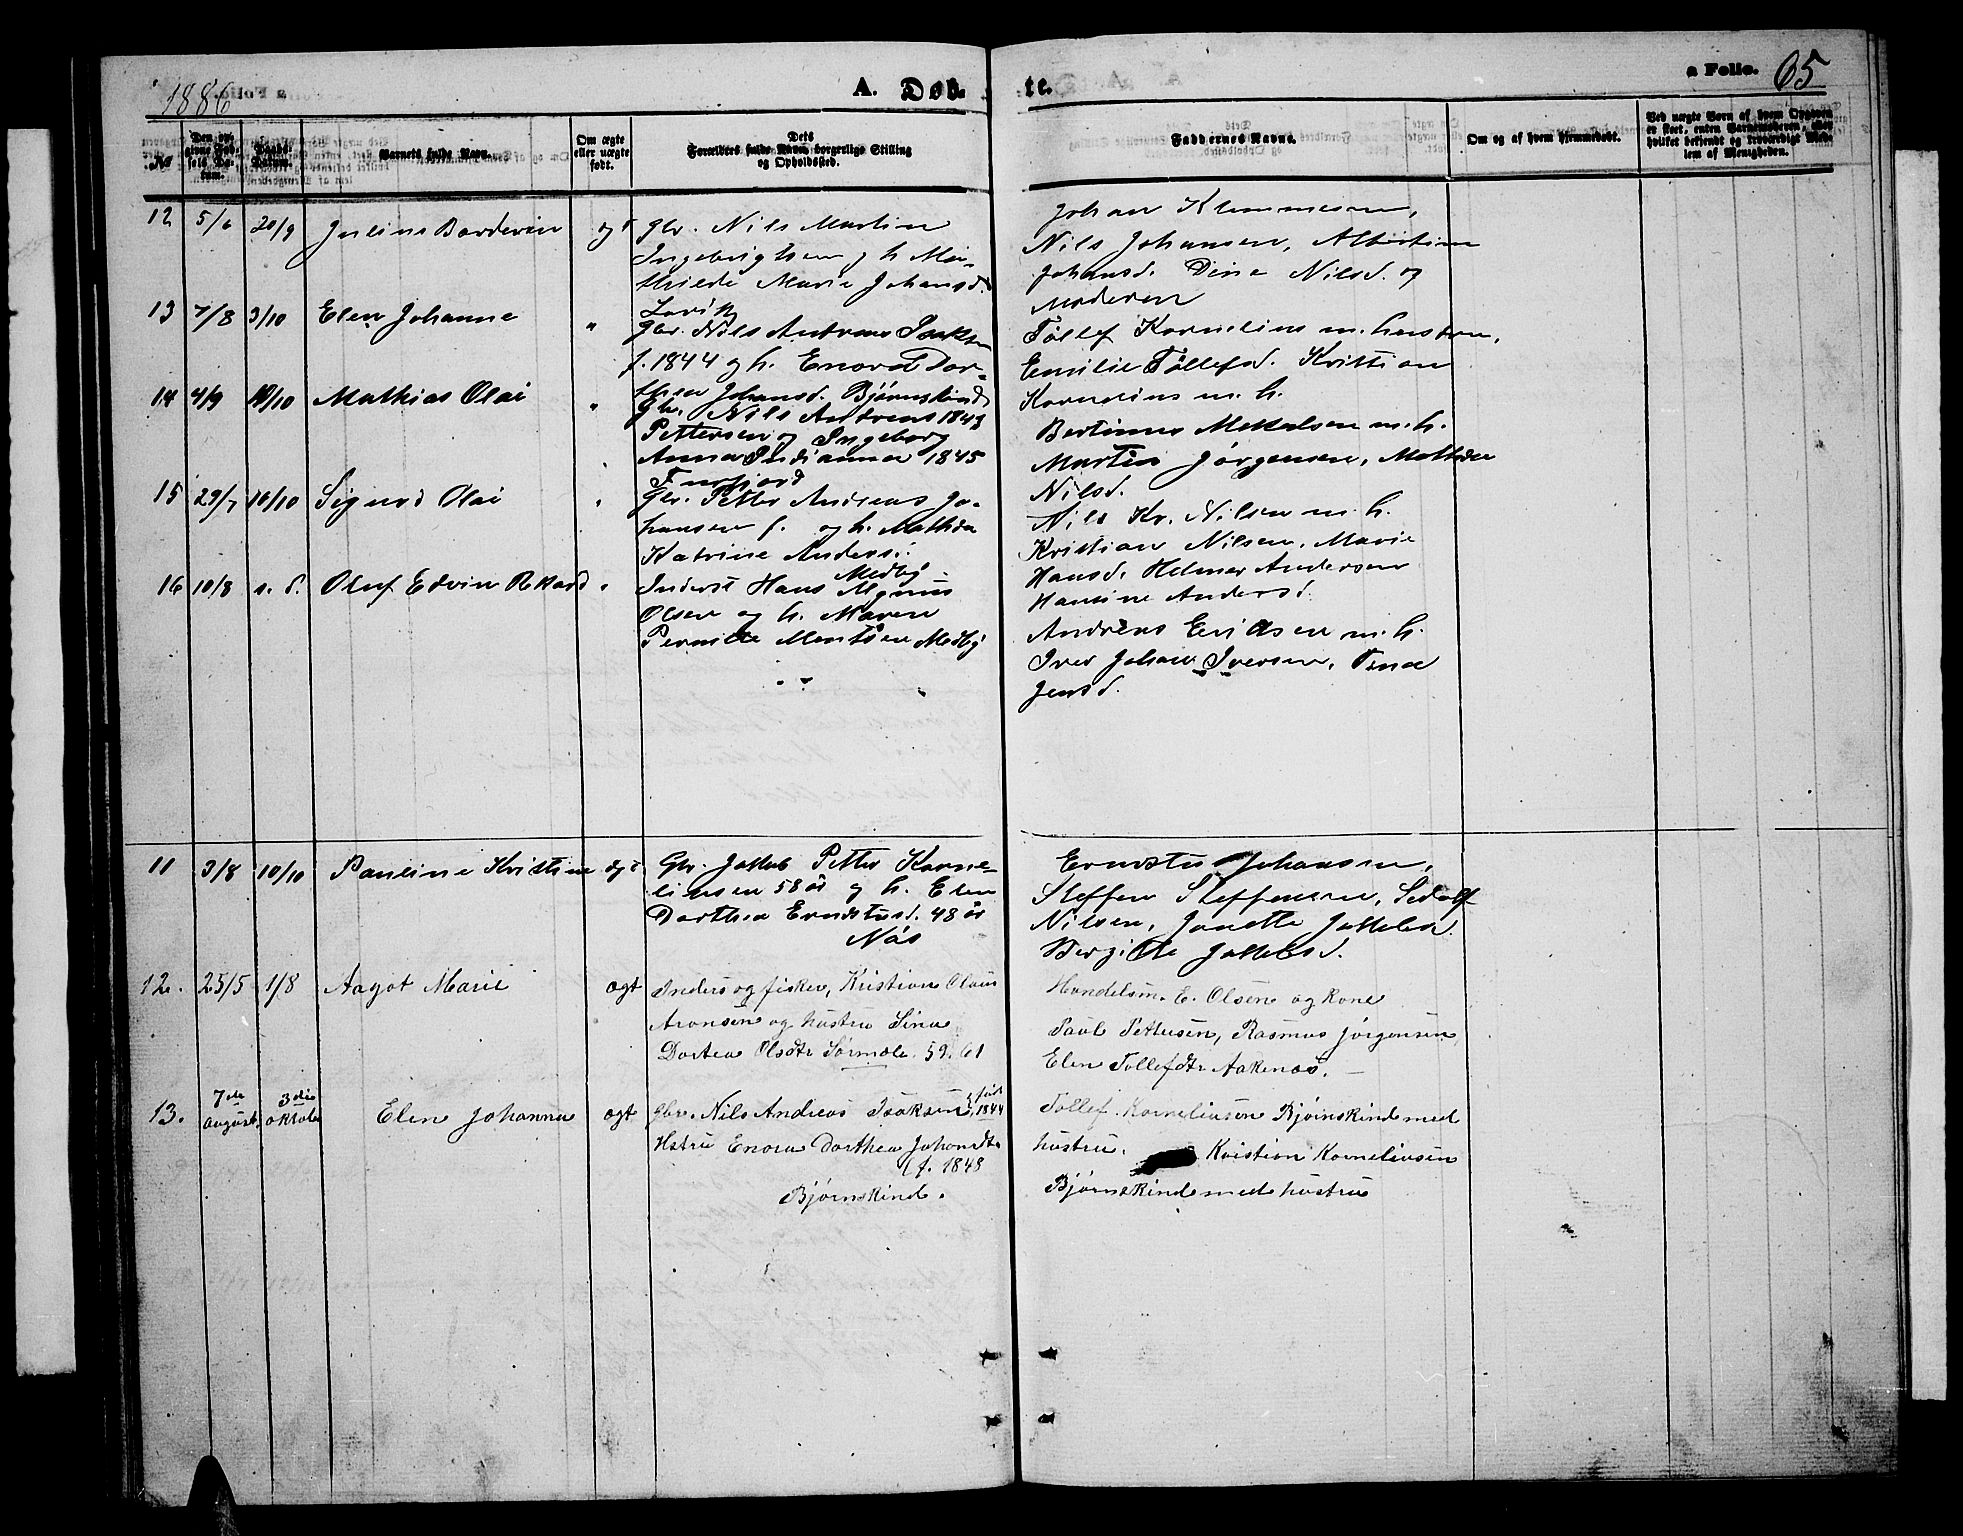 1886
A. Døb
te.
a Folio. 65
№
Den opgivne Fødsels Datum.
Daabs-Datum.
Barnets fulde Navn.
Om ægte eller uægte født.
Dets Forældres fulde Navn, borgerlige Stilling og Opholdssted.
Faddernes Navne.
Om og af hvem hjemmedøbt.
12 5/6 20/9 ogt Gbr. Nils Martin
Marie Johansd.
Nils Johansen,
Johansd. Dine Nilsd. og
Moderen
13 7/8 3/10 Elen Johanne " Gbr. Nils Andreas Isaksen
f. 1844 og h. Enora Dor-
thea Johansd. Bjørnskind
Tøllef Kornelius m. hustru,
Emilie Tøllefsd. Kristian
Kornelius m. h.
14 4/9 10/10 Mathias Olai " Gbr. Nils Andreas 1843
Pettersen og Ingeborg
Anna 1845
Bertinus m. h.
Martin Jørgensen,
Nilsd.
15 29/7 10/10 Sigurd Olai " Gbr. Petter Andreas Jo-
hansen f. og h. Mathda
Katrine Andersd.
Medby
Nils Kr. Nilsen m. h.
Kristian Nilsen, Marie
Hansd. Helmer Andersen
Hansine Andersd.
16 10/8 s. d. Oluf Edvin Rikard " Inderst Hans Magnus
Olsen og h. Maren
Pernille Medby
Andreas Eriksen m. h.
Iver Johan Iversen,
Jensd.
11 3/8 10/10 Pauline Kristine ægt Gbr. Jakob Petter Korne-
liussen 58 år og h. Elen
Dorthea Erndstusd. 48 år
Nøs
Erndstus Johansen,
Steffen Steffensen, Sedolf
Nilsen, Janette Jakobsd.
Bergitte Jakobsd.
12. 25/5 1/8 Aagot Marie ægt Inders og fisker, Kristian Olaus
Aronsen og hustru Sina
Dortea Olsdtr Sørmole. 59. 61
Handelsm. E. Olsen og Kone
Paul Pettersen, Rasmus Jørgensen
Elen Tollefdtr Aakenæs.
13. 7de august. 3die oktober Elen Johanna ægt Gbr. Nils Andreas Isaksen, født 1844
Hstru Enora Dorthea Johandtr
(f. 1848
Bjørnskind.
Tollef Korneliusen Bjørnskind med
hustru. Kristian Korneliusen
Bjørnskind med hustru